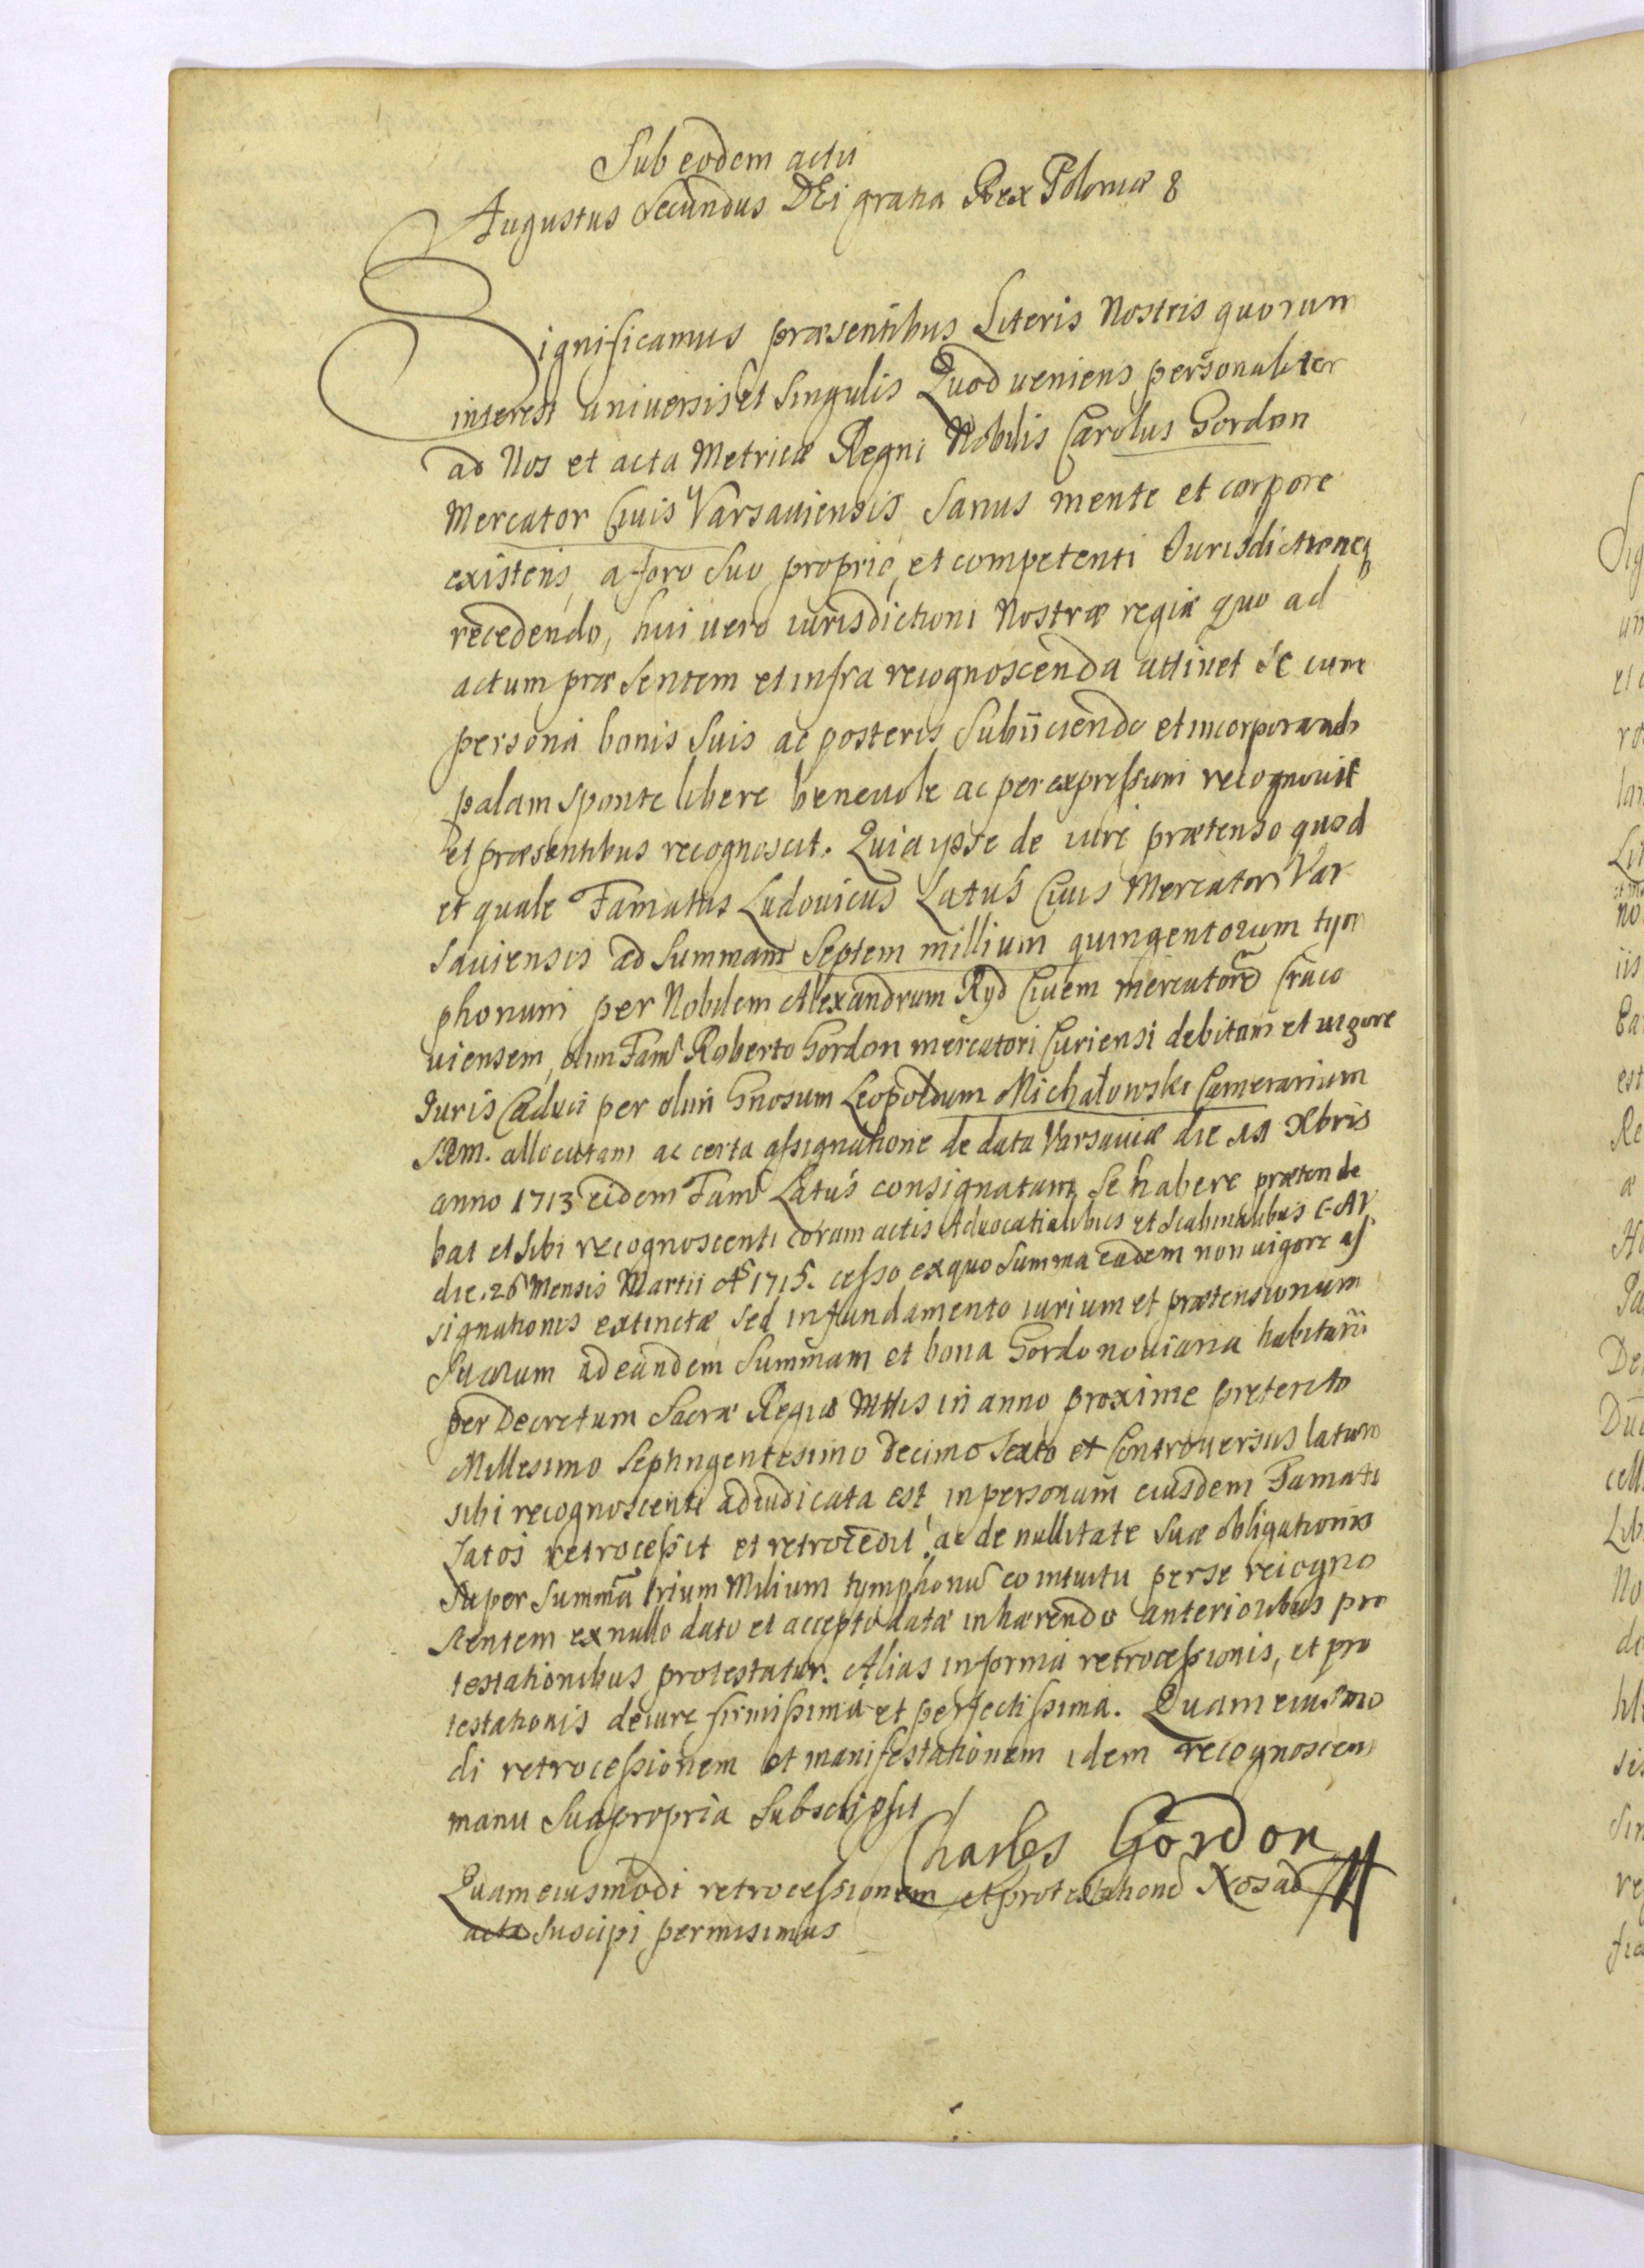 Sub eodem actu
Augustus Secundus DEi gratia Rex Poloniæ &
Significamus præsentibus Literis Nostris quorum
interest universis et Singulis Quod veniens personaliter
ad Nos et acta Metricæ Regni Nobilis Carolus Gordon
Mercator Civis Varsaviensis Sanus mente et corpore
existens, a foro Suo proprio, et competenti Iurisdictioneq
recedendo, huic vero iurisdictioni Nostræ regiæ quo ad
actum præsentem et infra recognoscenda attinet Se cum
persona bonis Suis ac posteris Subiiciendo et incorporando
palam sponte libere benevole ac per expressum recognovit
et præsentibus recognoscit. Quia ipse de iure prætenso quod
et quale Famatus Ludovicus Latus Civis Mercator Var
Saviensis ad Summam Septem millium quingentorum tym
phonum per Nobilem Alexandrum Ryd Civem mercatorē Craco
viensem, olim Fam Roberto Gordon mercatori Curiensi debitam et vigore
Iuris Caduci per olim Gnosum Leopoldum Michałowski Camerarium
SRM. allocutam ac certa assignatione de data Varsaviæ die 11 Xbris
anno 1713 eidem Fam Latus consignatam, Se habere prætende
bat et Sibi recognoscenti coram actis Advocatialibus et Scabinalibus
die 26 Mensis Martii A 1715. cesso ex quo Summa eadem non vigore as
signationis extinctæ Sed in fundamento iurium et prætensionum
Suarum ad eandem Summam et bona Gordonoviana habitarū
per Decretum Sacræ Regiæ Mttis in anno proxime præterito
Millesimo Septingentesimo Decimo Sexto et Controversiis latum
sibi recognoscenti adiudicata est, in personam eiusdem Famati
Latos retrocessit et retrocedit, ac de nullitate Suæ obligationis
Super Summā trium Milium tymphonū eo intuitu per se recogno
scentem ex nullo dato et accepto datæ inhærendo anterioribus pro
testationibus protestatur. Alias in forma retrocessionis, et pro
testationis de iure firmissima et perfectissima. Quam eiusmo
di retrocessionem et manifestationem idem recognoscens
manu Sua propria Subscripsit
Charles Gordon
Quam eiusmodi retrocessionem et protestationē Nos ad
acta Suscipi permisimus